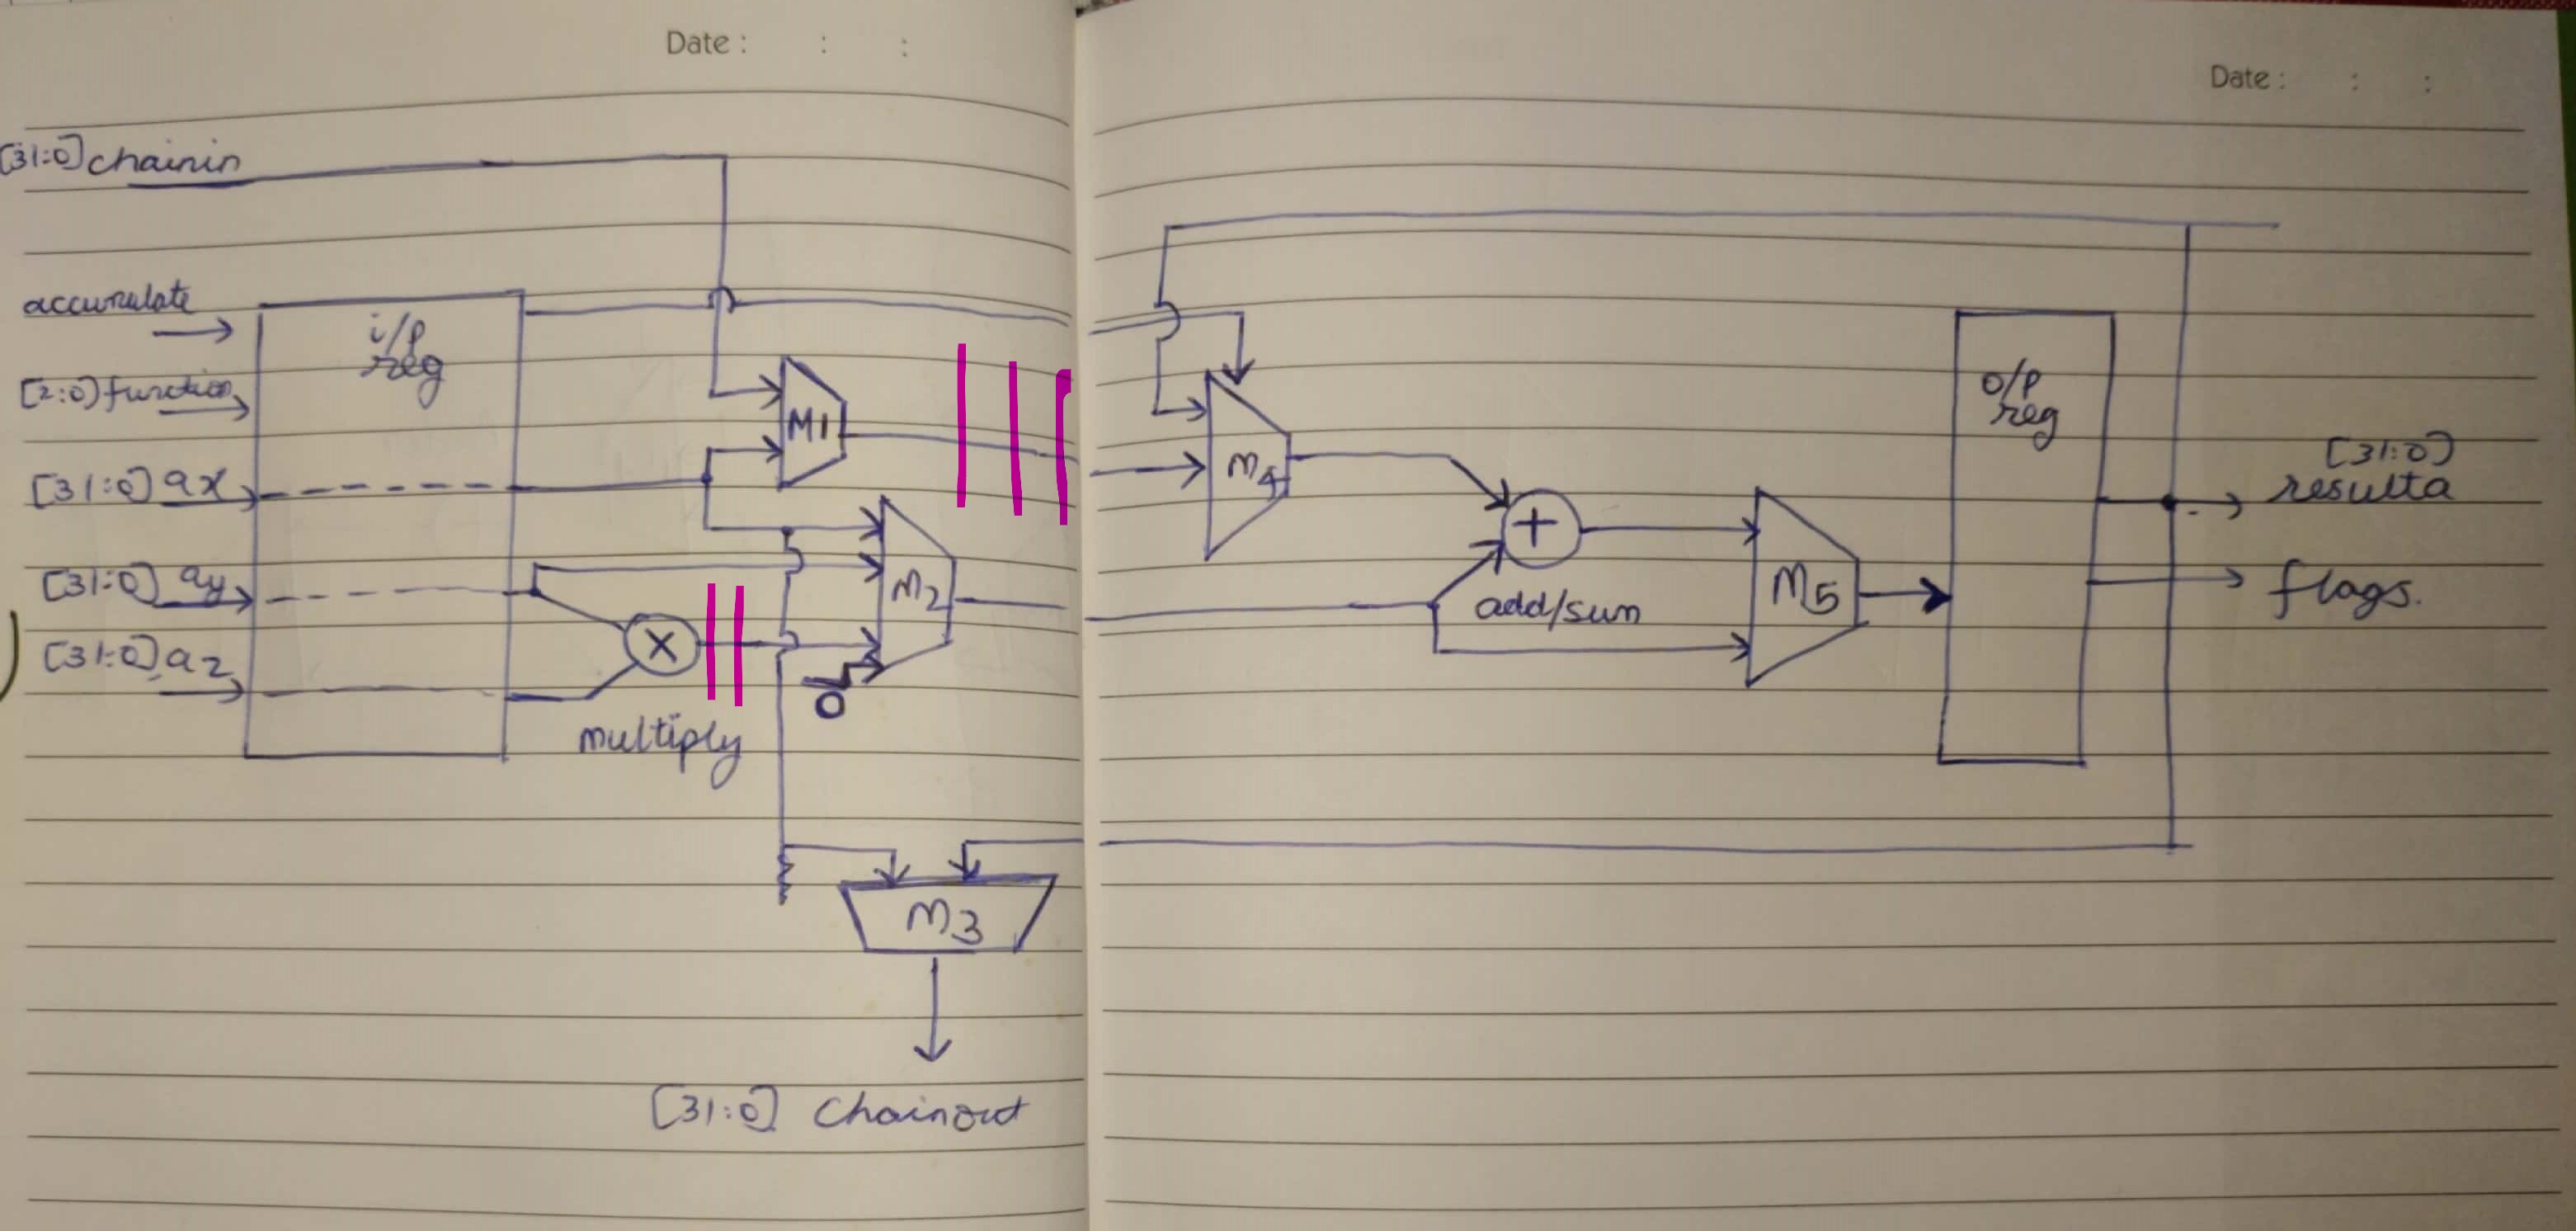 Date : : :
Date : : :
[31:0] chainin
accumulate
i/p
reg
[2:0] function
[31:0] ax
[31:0] ay
[31:0] az
multiply
X
M1
M2
0
M3
[31:0] Chainout
M4
+
add/sum
M5
o/p
reg
[31:0]
resulta
flags.